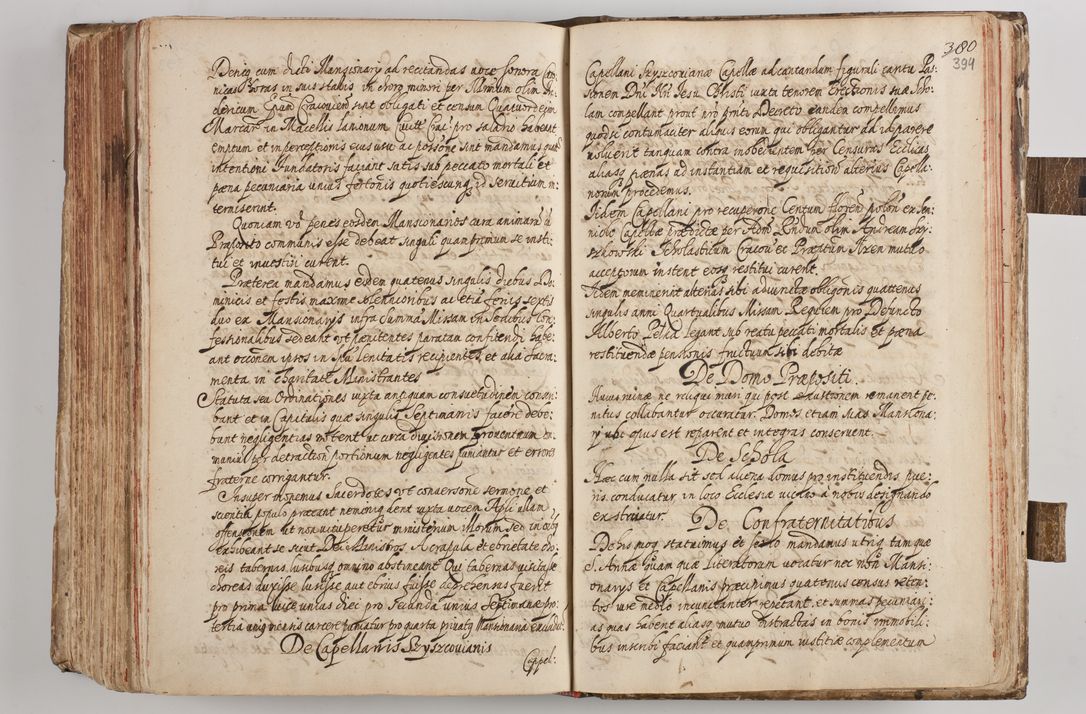 Deniq cum dicti Mansionarij ad recitandas voce sonora Ca-
nicas horas in suis stallis in choro minori per
dericum Cracovien sint obligati et censum Quatuordecim
Marcar in Macellis lanionum Civitt Crac pro salario habeant
emptum et in perceptionis eius usu ac possone sint mandamus quat
intentioni Fundatoris faciant satis sub peccato mortali et
pæna pecuniaria unius fertonis quotiescunq id servitium in-
termiserint.
Quoniam vo penes eosdem Mansionarios cura animarum a
Præposito communis esse debeat singuli quamprimum se insti-
tui et investiri curent.
Præterea mandamus eisdem quatenus singulis diebus Do-
minicis et festis maxime solennioribus ac etia ferijs sextis
duo ex Mansionarijs infra summa Missam in sedibus Con-
fessionalibus sedeant ut pænitentes paratam confitendi habe-
ant occonem ipsos in spu lenitatis recipientes, et alia sacra-
menta in charitate Ministrantes
Statuta seu Ordinationes iuxta antiquam consuetudinem conscri-
bant et in Capitulis quæ singulis Septimanis facere debe-
bunt negligentias notent ut circa divisionem proventuum co-
munium per detraction portionum negligentes puniantur et errores
fraterne corrigantur.
Insuper monemus Sacerdotes ut conversone sermone et
scientia populo præeant nemoniq dent iuxta vocem Apli ullam
offensionem ut non vituperetur ministerium illorum sed in oibq
exhibeant se sicut Dei Ministros. A crapula et ebrietate cho-
reis tabernis lusibusq omnino abstineant. Qui tabernas visitasse
choreas duxisse lusisse aut ebrius fuisse deprehensus fuerit
pro prima vice unius diei pro secunda unius Septimanæ pro
tertia unius mensis carcere puniatur pro quarta privatq Mansionaria excludatr
De Capellanis Szyszcovianis
Cappel:
380
394
Capellani Szyszcovianæ Capellæ ad cantandum figurali cantu Pas-
sionem Dni Nri Jesu Christi iuxta tenorem Erectionis suæ Scho-
lam compellant prout pro pnti Decreto eandem compellemus
quodsi contumaciter aliquis eorum qui obligantur ad id parere
noluerit tanquam contra inobedientem per Censuras Ecclicas
aliasq pænas ad instantiam et requisitionē alterius Capella-
norum procedemus.
Iidem Capellani pro recuperone Centum floren polon ex
Capellæ prædictæ per Adm Rndum olim Andream Szy-
szkowski Scholasticum Cracov et Præptum Ilzen mutuo
acceptorum instent eosq restitui curent.
Idem meminerit alterius sibi adiunctæ obligonis quatenus
singulis anni Quartualibus Missam Requiem pro Defuncto
Alberto legant sub reatu peccati mortalis et pæna
restituendæ pensionis fructuum sibi debitæ
De Domo Præpositi
Huius ruinæ ne reliqui muri qui post exustionem remanent pe-
nitus collabantur occuratur. Domos etiam suas Mansiona-
rij ubi opus est reparent et integras conservent.
De Schola
Hæc cum nulla sit sed aliena domus pro instituendis pue-
ris conducatur in loco Ecclesiæ vicino a nobis designando
extruatur.
De Confraternitatibus
De his mox statuimus et serio mandamus utriq tam quæ
S. Annæ quam quæ Literatorum vocatur nec non Mansi-
onarijs et Capellanis præcipimus quatenus census reten-
tos iure medio incunctanter repetant, et summas pecuniari-
as quas habent aliasq mutuo distractas in bonis immobili-
bus inscribi faciant et quamprimum iustitiæ complementum